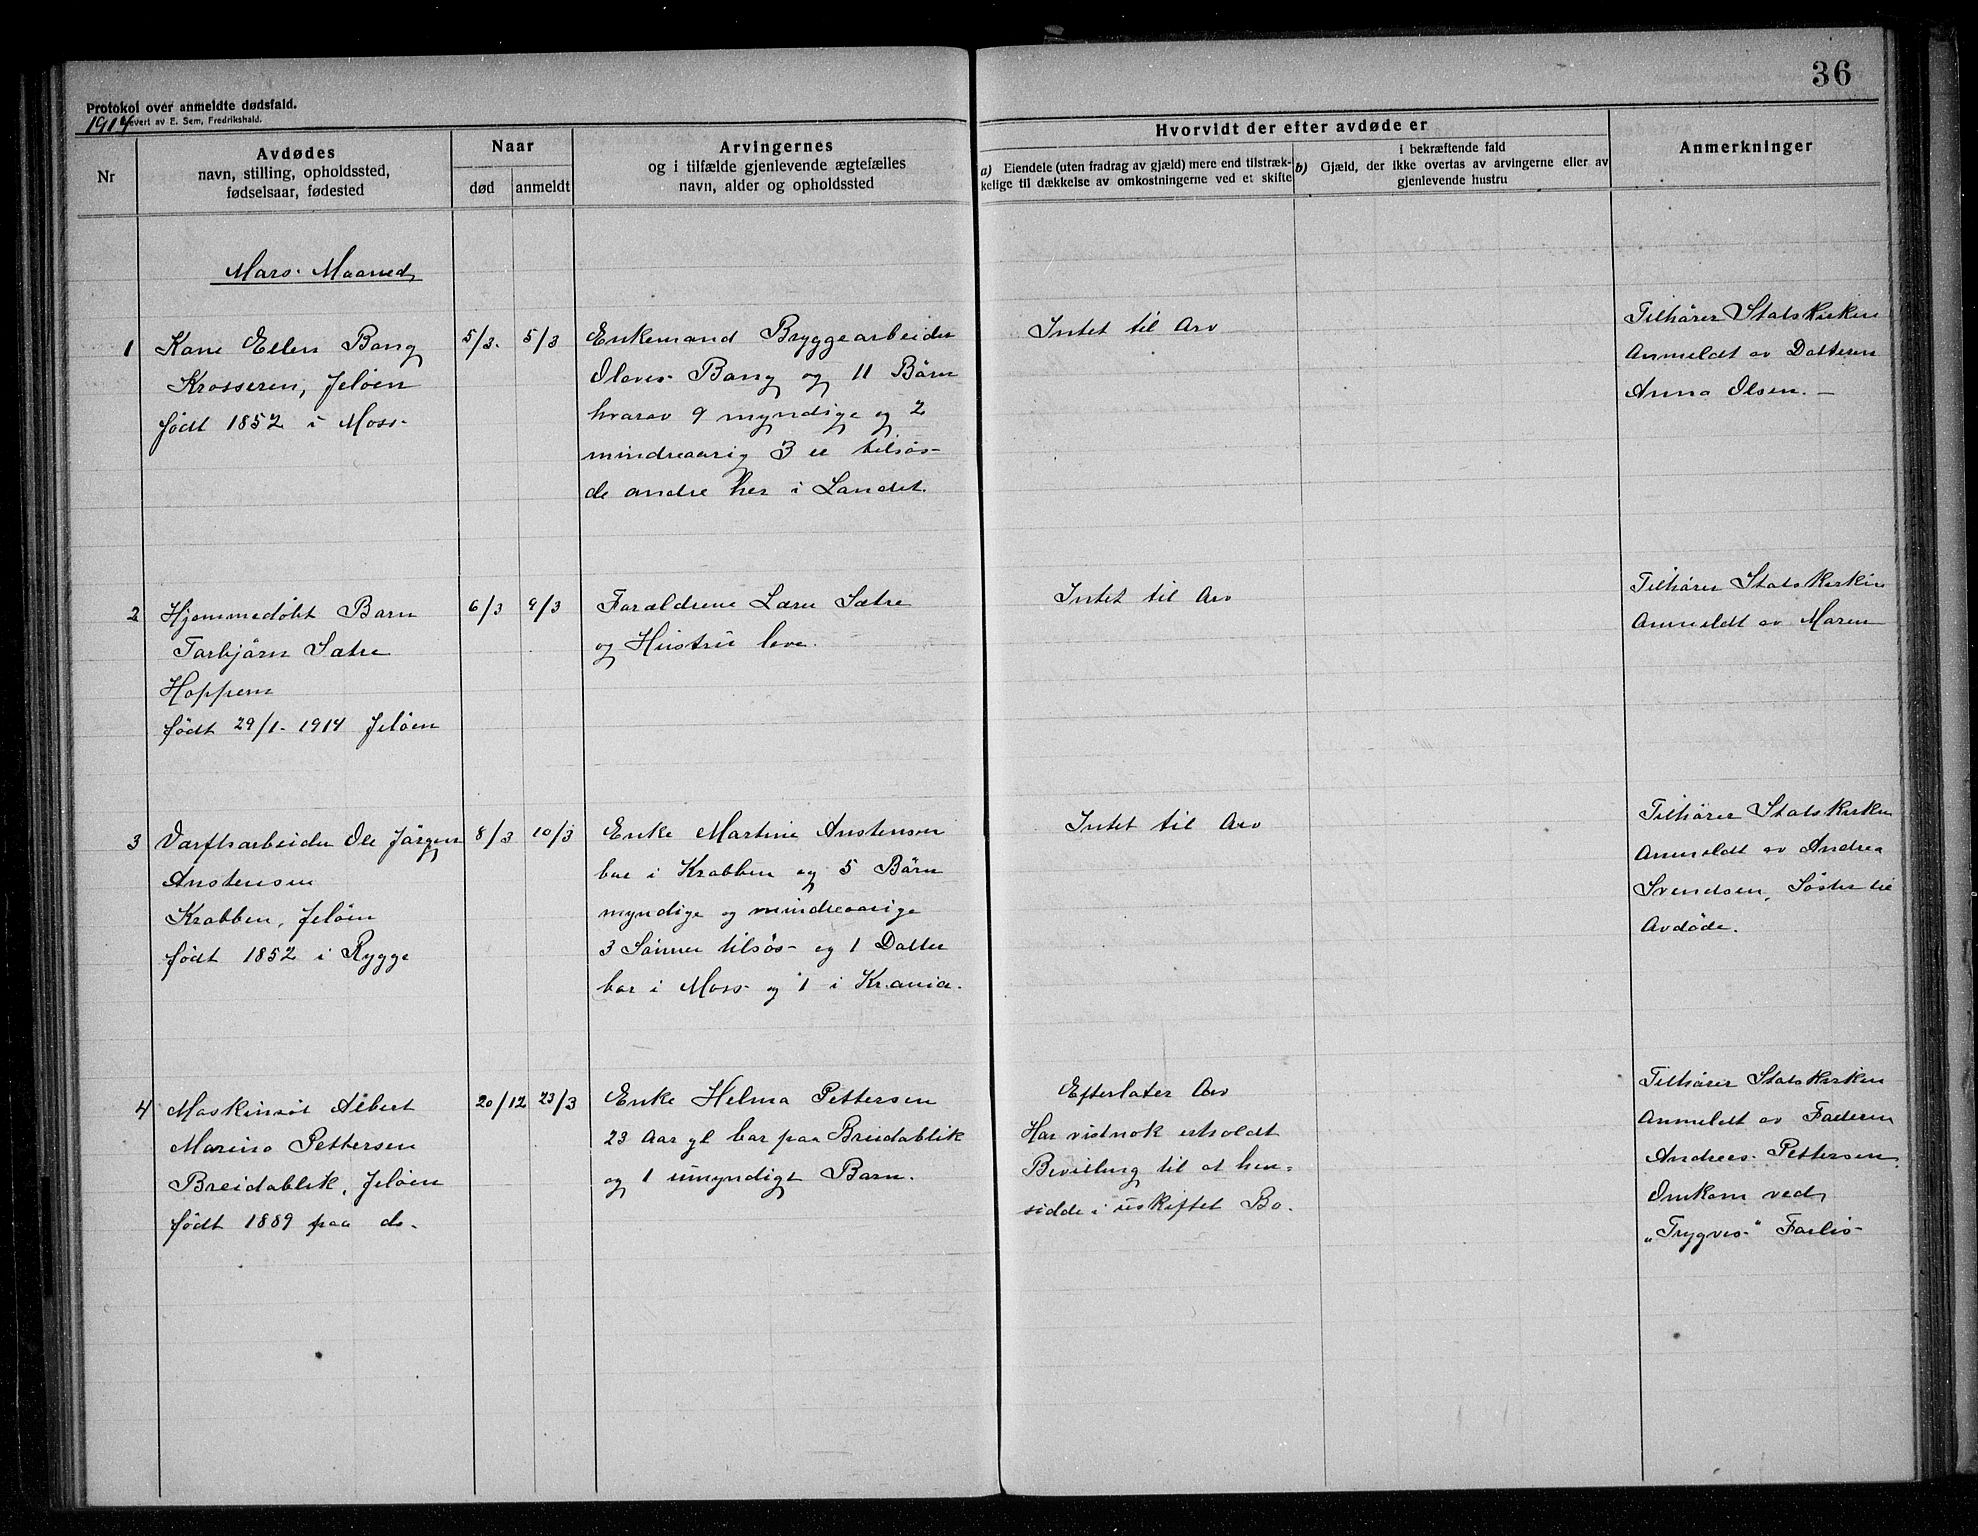 36
Protokol over anmeldte dødsfald.
1914 Levert av E. Sem, Fredrikshald.
Nr
Avdødes
navn, stilling, opholdssted,
fødselsaar, fødested
Naar
død
anmeldt
Arvingernes
og i tilfælde gjenlevende ægtefælles
navn, alder og opholdssted
Hvorvidt der efter avdøde er
a) Eiendele (uten fradrag av gjæld) mere end tilstræk-
kelige til dækkelse av omkostningerne ved et skifte
i bekræftende fald
b) Gjæld, der ikke overtas av arvingerne eller av
gjenlevende hustru
Anmerkninger
Mars Maaned
1
Kone Ellen Bang
Krosseren, Jeløen
født 1852 i Moss
5/3.
5/3
Enkemand Bryggearbeider
Olaves Bang og 11 Børn
hvorav 9 myndige og 2
mindreaarig 3 er tilsøs
de andre her i Landet.
Intet til Arv
Tilhører Statskirken
Anmeldt av Datteren
Anna Olsen. —
2
Hjemmedøbt Barn
Torbjørn Sætre
Hoppern
født 29/1. 1914 Jeløen
6/3
9/3
Forældrene Lærer Sætre
og Hustru leve.
Intet til Arv
Tilhører Statskirken
Anmeldt av Moren
3
Værftsarbeider Ole Jørgen
Anstensen
Krabben, Jeløen
født 1852 i Rygge
8/3
10/3
Enke Martine Anstensen
bor i Krabben og 5 Børn
myndige og mindreaarige
3 Sønner tilsøs og 1 Datter
bor i Moss og 1 i Kr.ania.
Intet til Arv
Tilhører Statskirken
Anmeldt av Andrea
Svendsen, Søster til
Avdøde.
4
Maskinist Albert
Marino Pettersen
Breidablik, Jeløen
født 1889 paa do.
20/12
23/3
Enke Helma Pettersen
23 Aar gl bor paa Breidablik
og 1 umyndigt Barn.
Efterlater Arv
Har vistnok erholdt
Bevilling til at hen-
sidde i uskiftet Bo.
Tilhører Statskirken
Anmeldt av Faderen
Andreas Pettersen.
Omkom ved
"Trygves" Forlis